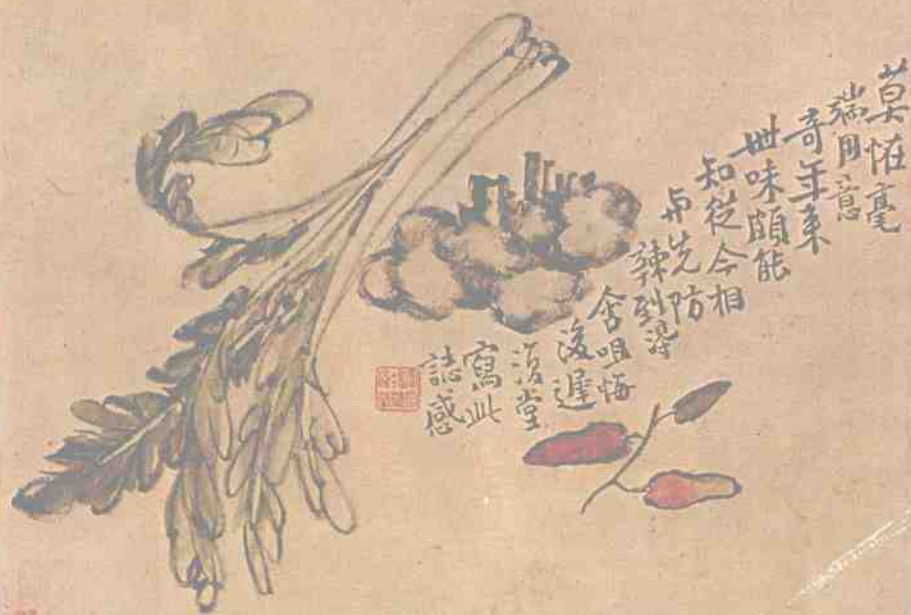 莫恠毫
端用意
奇年来
世味頗能
知從今相
与先防
辣到得
含咀悔
後遲
復堂
寫此
誌感